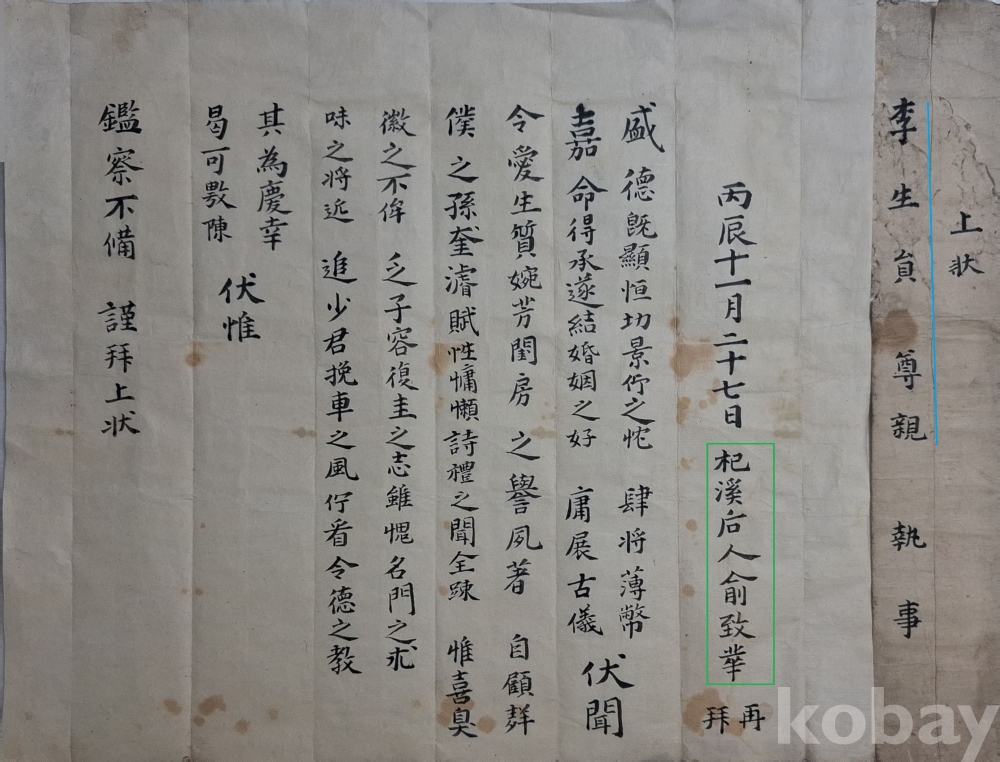 上状
李生員尊親執事
丙辰十一月二十七日杞溪后人俞致華再拜
盛德旣顯恒切景仰之忱肆將薄幣
嘉命得承遂結婚姻之好庸展古儀伏聞
令愛生質婉芳閨房之譽夙著自顧群
僕之孫奎濬賦性慵懶詩禮之聞全踈惟喜臭
徽之不侔乏子容復圭之志雖愧名門之求
味之將近追少君挽車之風佇看令德之教
其為慶幸
曷可斁陳伏惟
鑑察不備謹拜上状
kobay